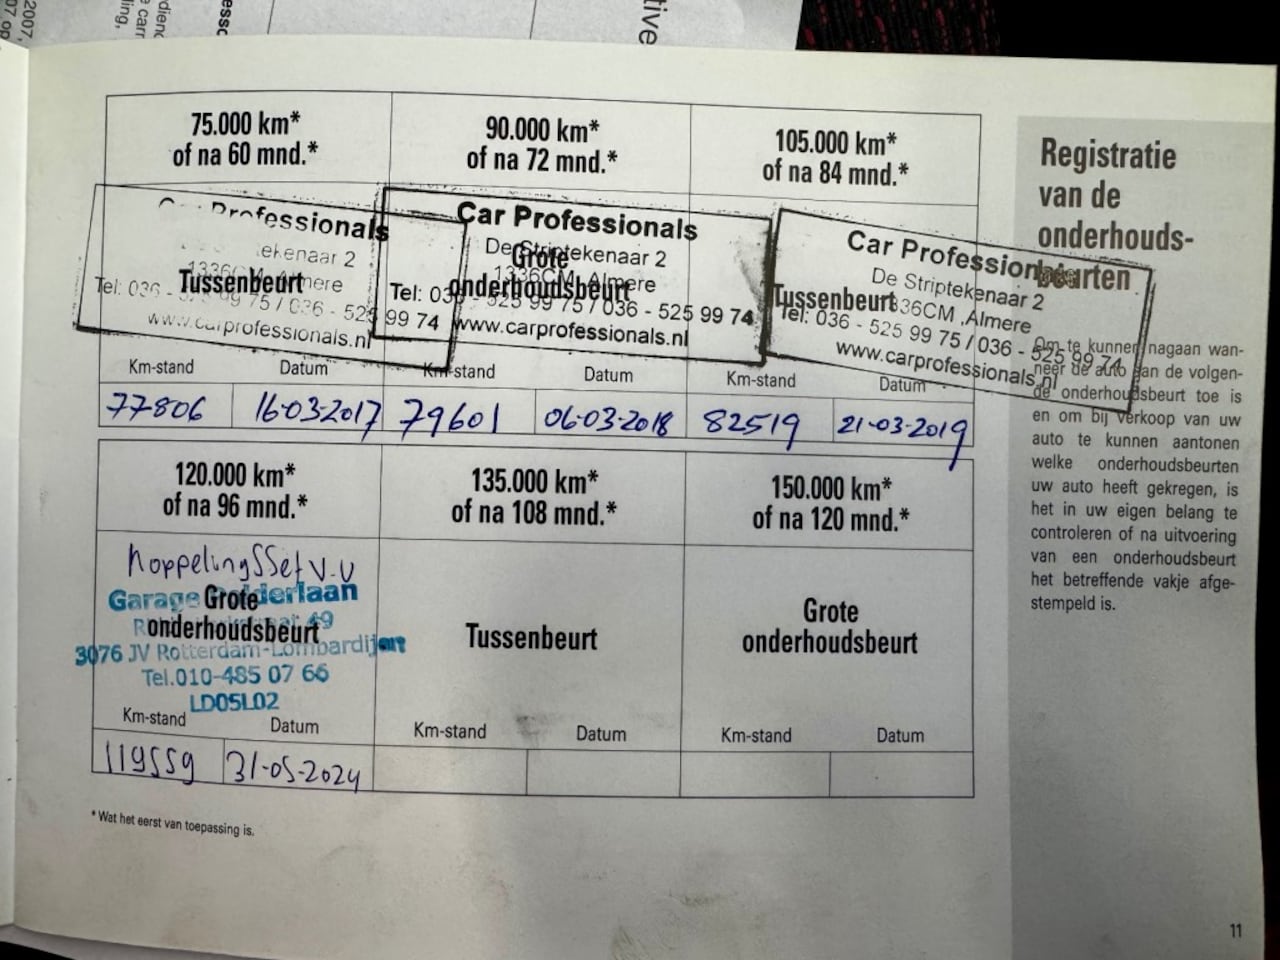 2007,
07 op
dienc
e carr
ling,
essc
tive
75.000 km*
of na 60 mnd.*
90.000 km*
of na 72 mnd.*
105.000 km*
of na 84 mnd.*
Car Professionals
ekenaar 2
1336CM, Almere
Tel: 036 - 525 99 75 / 036 - 525 99 74
www.carprofessionals.nl
Tussenbeurt
Car Professionals
De Striptekenaar 2
1336CM, Almere
Tel: 036 - 525 99 75 / 036 - 525 99 74
www.carprofessionals.nl
Grote
onderhoudsbeurt
Car Professionals
De Striptekenaar 2
1336CM ,Almere
Tel: 036 - 525 99 75 / 036 - 525 99 74
www.carprofessionals.nl
Tussenbeurt
Km-stand Datum
Km-stand Datum
Km-stand Datum
77806 16-03-2017
79601 06-03-2018
82519 21-03-2019
120.000 km*
of na 96 mnd.*
135.000 km*
of na 108 mnd.*
150.000 km*
of na 120 mnd.*
KoppelingSSet V.V
Garage Polderlaan
49
3076 JV Rotterdam-Lombardijen
Tel.010-485 07 66
LD05L02
Grote
onderhoudsbeurt
Tussenbeurt
Grote
onderhoudsbeurt
Km-stand Datum
Km-stand Datum
Km-stand Datum
119559 31-05-2024
* Wat het eerst van toepassing is.
Registratie
van de
onderhouds-
beurten
Om te kunnen nagaan wan-
neer de auto aan de volgen-
de onderhoudsbeurt toe is
en om bij verkoop van uw
auto te kunnen aantonen
welke onderhoudsbeurten
uw auto heeft gekregen, is
het in uw eigen belang te
controleren of na uitvoering
van een onderhoudsbeurt
het betreffende vakje afge-
stempeld is.
11